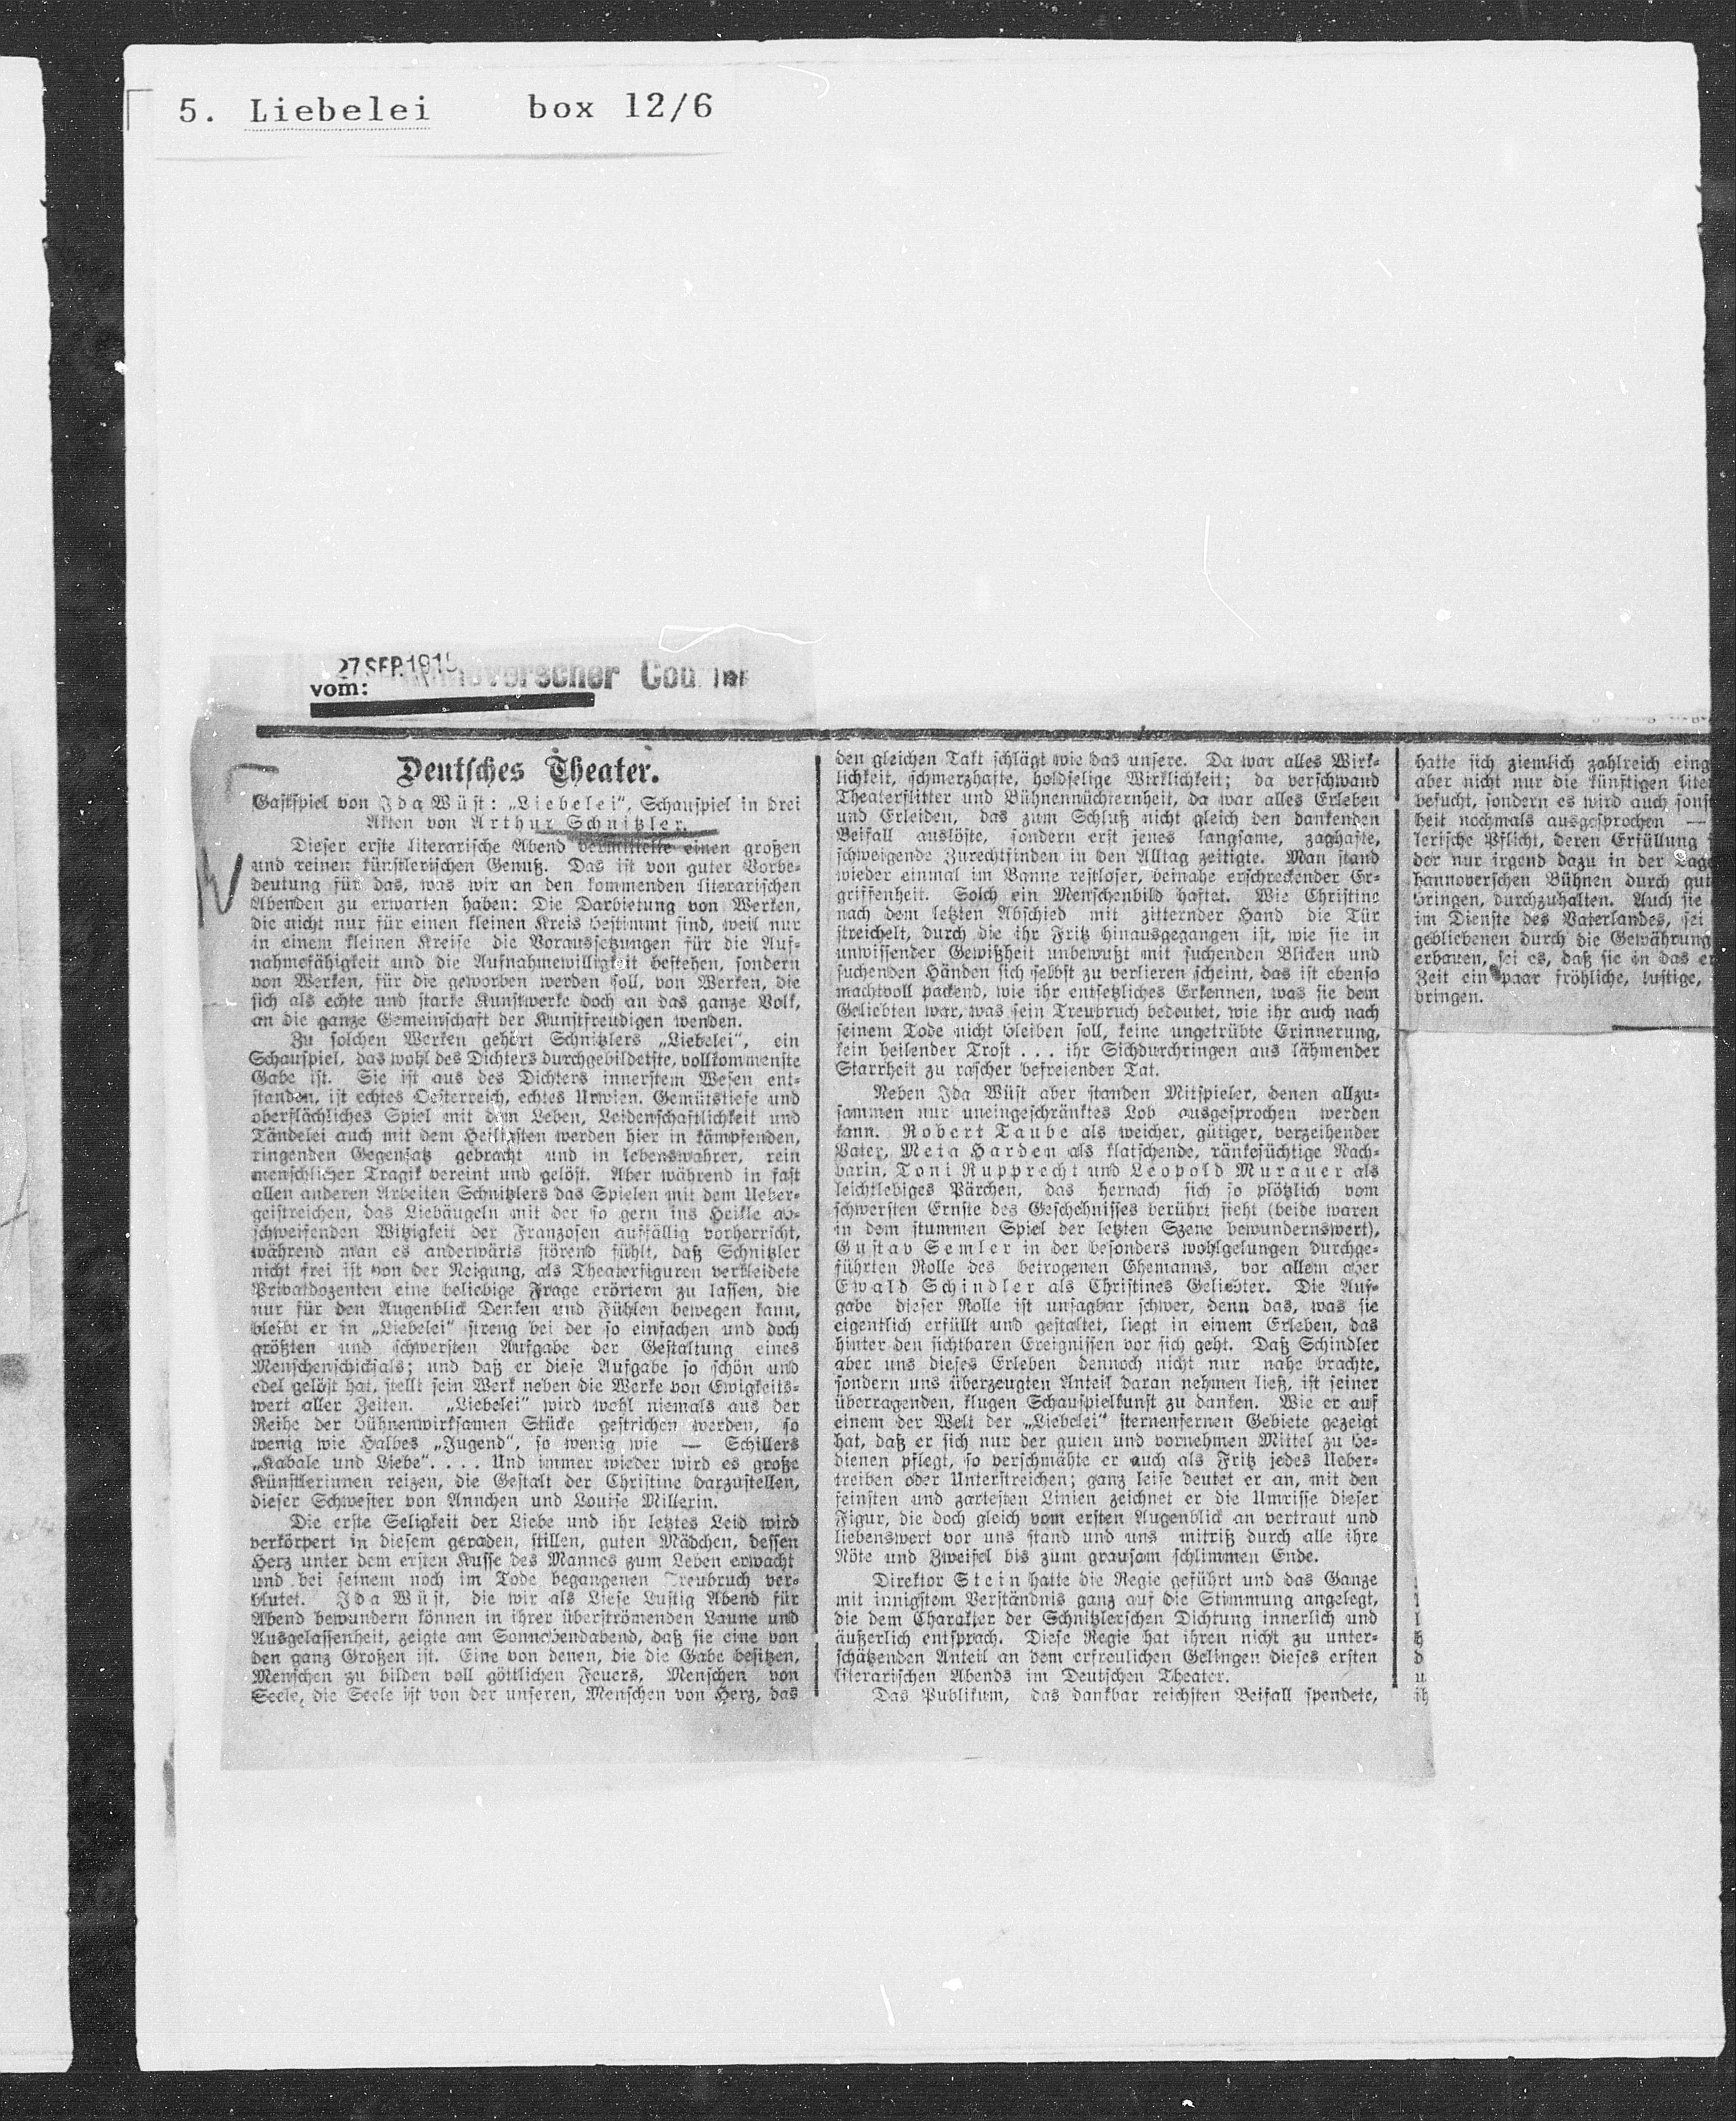 5. Liebelei box 12/6
27 SEP. 1915
vom:
Deutsches Theater.
Gastspiel von Ida Wüst: „Liebelei“, Schauspiel in drei
Akten von Arthur Schnitzler.
Dieser erste literarische Abend vermittelte einen großen
und reinen künstlerischen Genuß. Das ist von guter Vorbe-
deutung für das, was wir an den kommenden literarischen
Abenden zu erwarten haben: Die Darbietung von Werken,
die nicht nur für einen kleinen Kreis bestimmt sind, weil nur
in einem kleinen Kreise die Voraussetzungen für die Auf-
nahmefähigkeit und die Aufnahmewilligkeit bestehen, sondern
von Werken, für die geworben werden soll, von Werken, die
sich als echte und starke Kunstwerke doch an das ganze Volk,
an die ganze Gemeinschaft der Kunstfreudigen wenden.
Zu solchen Werken gehört Schnitzlers „Liebelei“, ein
Schauspiel, das wohl des Dichters durchgebildetste, vollkommenste
Gabe ist. Sie ist aus des Dichters innerstem Wesen ent-
standen, ist echtes Oesterreich, echtes Urwien. Gemütstiefe und
oberflächliches Spiel mit dem Leben, Leidenschaftlichkeit und
Tändelei auch mit dem Heiligsten werden hier in kämpfenden,
ringenden Gegensatz gebracht und in lebenswahrer, rein
menschlicher Tragik vereint und gelöst. Aber während in fast
allen anderen Arbeiten Schnitzlers das Spielen mit dem Ueber-
geistreichen, das Liebäugeln mit der so gern ins Heikle ab-
schweifenden Witzigkeit der Franzosen auffällig vorherrscht,
während man es anderwärts störend fühlt, daß Schnitzler
nicht frei ist von der Neigung, als Theaterfiguren verkleidete
Privatdozenten eine beliebige Frage erörtern zu lassen, die
nur für den Augenblick Denken und Fühlen bewegen kann,
bleibt er in „Liebelei“ streng bei der so einfachen und doch
größten und schwersten Aufgabe der Gestaltung eines
Menschenschicksals; und daß er diese Aufgabe so schön und
edel gelöst hat, stellt sein Werk neben die Werke von Ewigkeits-
wert aller Zeiten. „Liebelei“ wird wohl niemals aus der
Reihe der bühnenwirksamen Stücke gestrichen werden, so
wenig wie Halbes „Jugend“, so wenig wie — Schillers
„Kabale und Liebe“. . . . Und immer wieder wird es große
Künstlerinnen reizen, die Gestalt der Christine darzustellen,
dieser Schwester von Annchen und Louise Millerin.
Die erste Seligkeit der Liebe und ihr letztes Leid wird
verkörpert in diesem geraden, stillen, guten Mädchen, dessen
Herz unter dem ersten Kusse des Mannes zum Leben erwacht
und bei seinem noch im Tode begangenen Treubruch ver-
blutet. Ida Wüst, die wir als Liese Lustig Abend für
Abend bewundern können in ihrer überströmenden Laune und
Ausgelassenheit, zeigte am Sonnabendabend, daß sie eine von
den ganz Großen ist. Eine von denen, die die Gabe besitzen,
Menschen zu bilden voll göttlichen Feuers, Menschen von
Seele, die Seele ist von der unseren, Menschen von Herz, das
den gleichen Takt schlägt wie das unsere. Da war alles Wirk-
lichkeit, schmerzhafte, holdselige Wirklichkeit; da verschwand
Theaterflitter und Bühnennüchternheit, da war alles Erleben
und Erleiden, das zum Schluß nicht gleich den dankenden
Beifall auslöste, sondern erst jenes langsame, zaghafte,
schweigende Zurechtfinden in den Alltag zeitigte. Man stand
wieder einmal im Banne restloser, beinahe erschreckender Er-
griffenheit. Solch ein Menschenbild haftet. Wie Christine
nach dem letzten Abschied mit zitternder Hand die Tür
streichelt, durch die ihr Fritz hinausgegangen ist, wie sie in
unwissender Gewißheit unbewußt mit suchenden Blicken und
suchenden Händen sich selbst zu verlieren scheint, das ist ebenso
machtvoll packend, wie ihr entsetzliches Erkennen, was sie dem
Geliebten war, was sein Treubruch bedeutet, wie ihr auch nach
seinem Tode nicht bleiben soll, keine ungetrübte Erinnerung,
kein heilender Trost . . . ihr Sichdurchringen aus lähmender
Starrheit zu rascher befreiender Tat.
Neben Ida Wüst aber standen Mitspieler, denen allzu-
sammen nur uneingeschränktes Lob ausgesprochen werden
kann. Robert Taube als weicher, gütiger, verzeihender
Vater, Meta Harden als klatschende, ränkesüchtige Nach-
barin, Toni Rupprecht und Leopold Murauer als
leichtlebiges Pärchen, das hernach sich so plötzlich vom
schwersten Ernste des Geschehnisses berührt sieht (beide waren
in dem stummen Spiel der letzten Szene bewundernswert),
Gustav Semler in der besonders wohlgelungen durchge-
führten Rolle des betrogenen Ehemanns, vor allem aber
Ewald Schindler als Christines Geliebter. Die Auf-
gabe dieser Rolle ist unsagbar schwer, denn das, was sie
eigentlich erfüllt und gestaltet, liegt in einem Erleben, das
hinter den sichtbaren Ereignissen vor sich geht. Daß Schindler
aber uns dieses Erleben dennoch nicht nur nahe brachte,
sondern uns überzeugten Anteil daran nehmen ließ, ist seiner
überragenden, klugen Schauspielkunst zu danken. Wie er auf
einem der Welt der „Liebelei“ sternenfernen Gebiete gezeigt
hat, daß er sich nur der guten und vornehmen Mittel zu be-
dienen pflegt, so verschmähte er auch als Fritz jedes Ueber-
treiben oder Unterstreichen; ganz leise deutet er an, mit den
feinsten und zartesten Linien zeichnet er die Umrisse dieser
Figur, die doch gleich vom ersten Augenblick an vertraut und
liebenswert vor uns stand und uns mitriß durch alle ihre
Nöte und Zweifel bis zum grausam schlimmen Ende.
Direktor Stein hatte die Regie geführt und das Ganze
mit innigstem Verständnis ganz auf die Stimmung angelegt,
die dem Charakter der Schnitzlerschen Dichtung innerlich und
äußerlich entsprach. Diese Regie hat ihren nicht zu unter-
schätzenden Anteil an dem erfreulichen Gelingen dieses ersten
literarischen Abends im Deutschen Theater.
Das Publikum, das dankbar reichsten Beifall spendete,
hatte sich ziemlich zahlreich eing
aber nicht nur die künftigen liter
besucht, sondern es wird auch sonst
heit nochmals ausgesprochen —
lerische Pflicht, deren Erfüllung
der nur irgend dazu in der Lage
hannoverschen Bühnen durch gut
bringen, durchzuhalten. Auch sie
im Dienste des Vaterlandes, sei
gebliebenen durch die Gewährung
erbauen, sei es, daß sie in das er
Zeit ein paar fröhliche, lustige,
bringen.